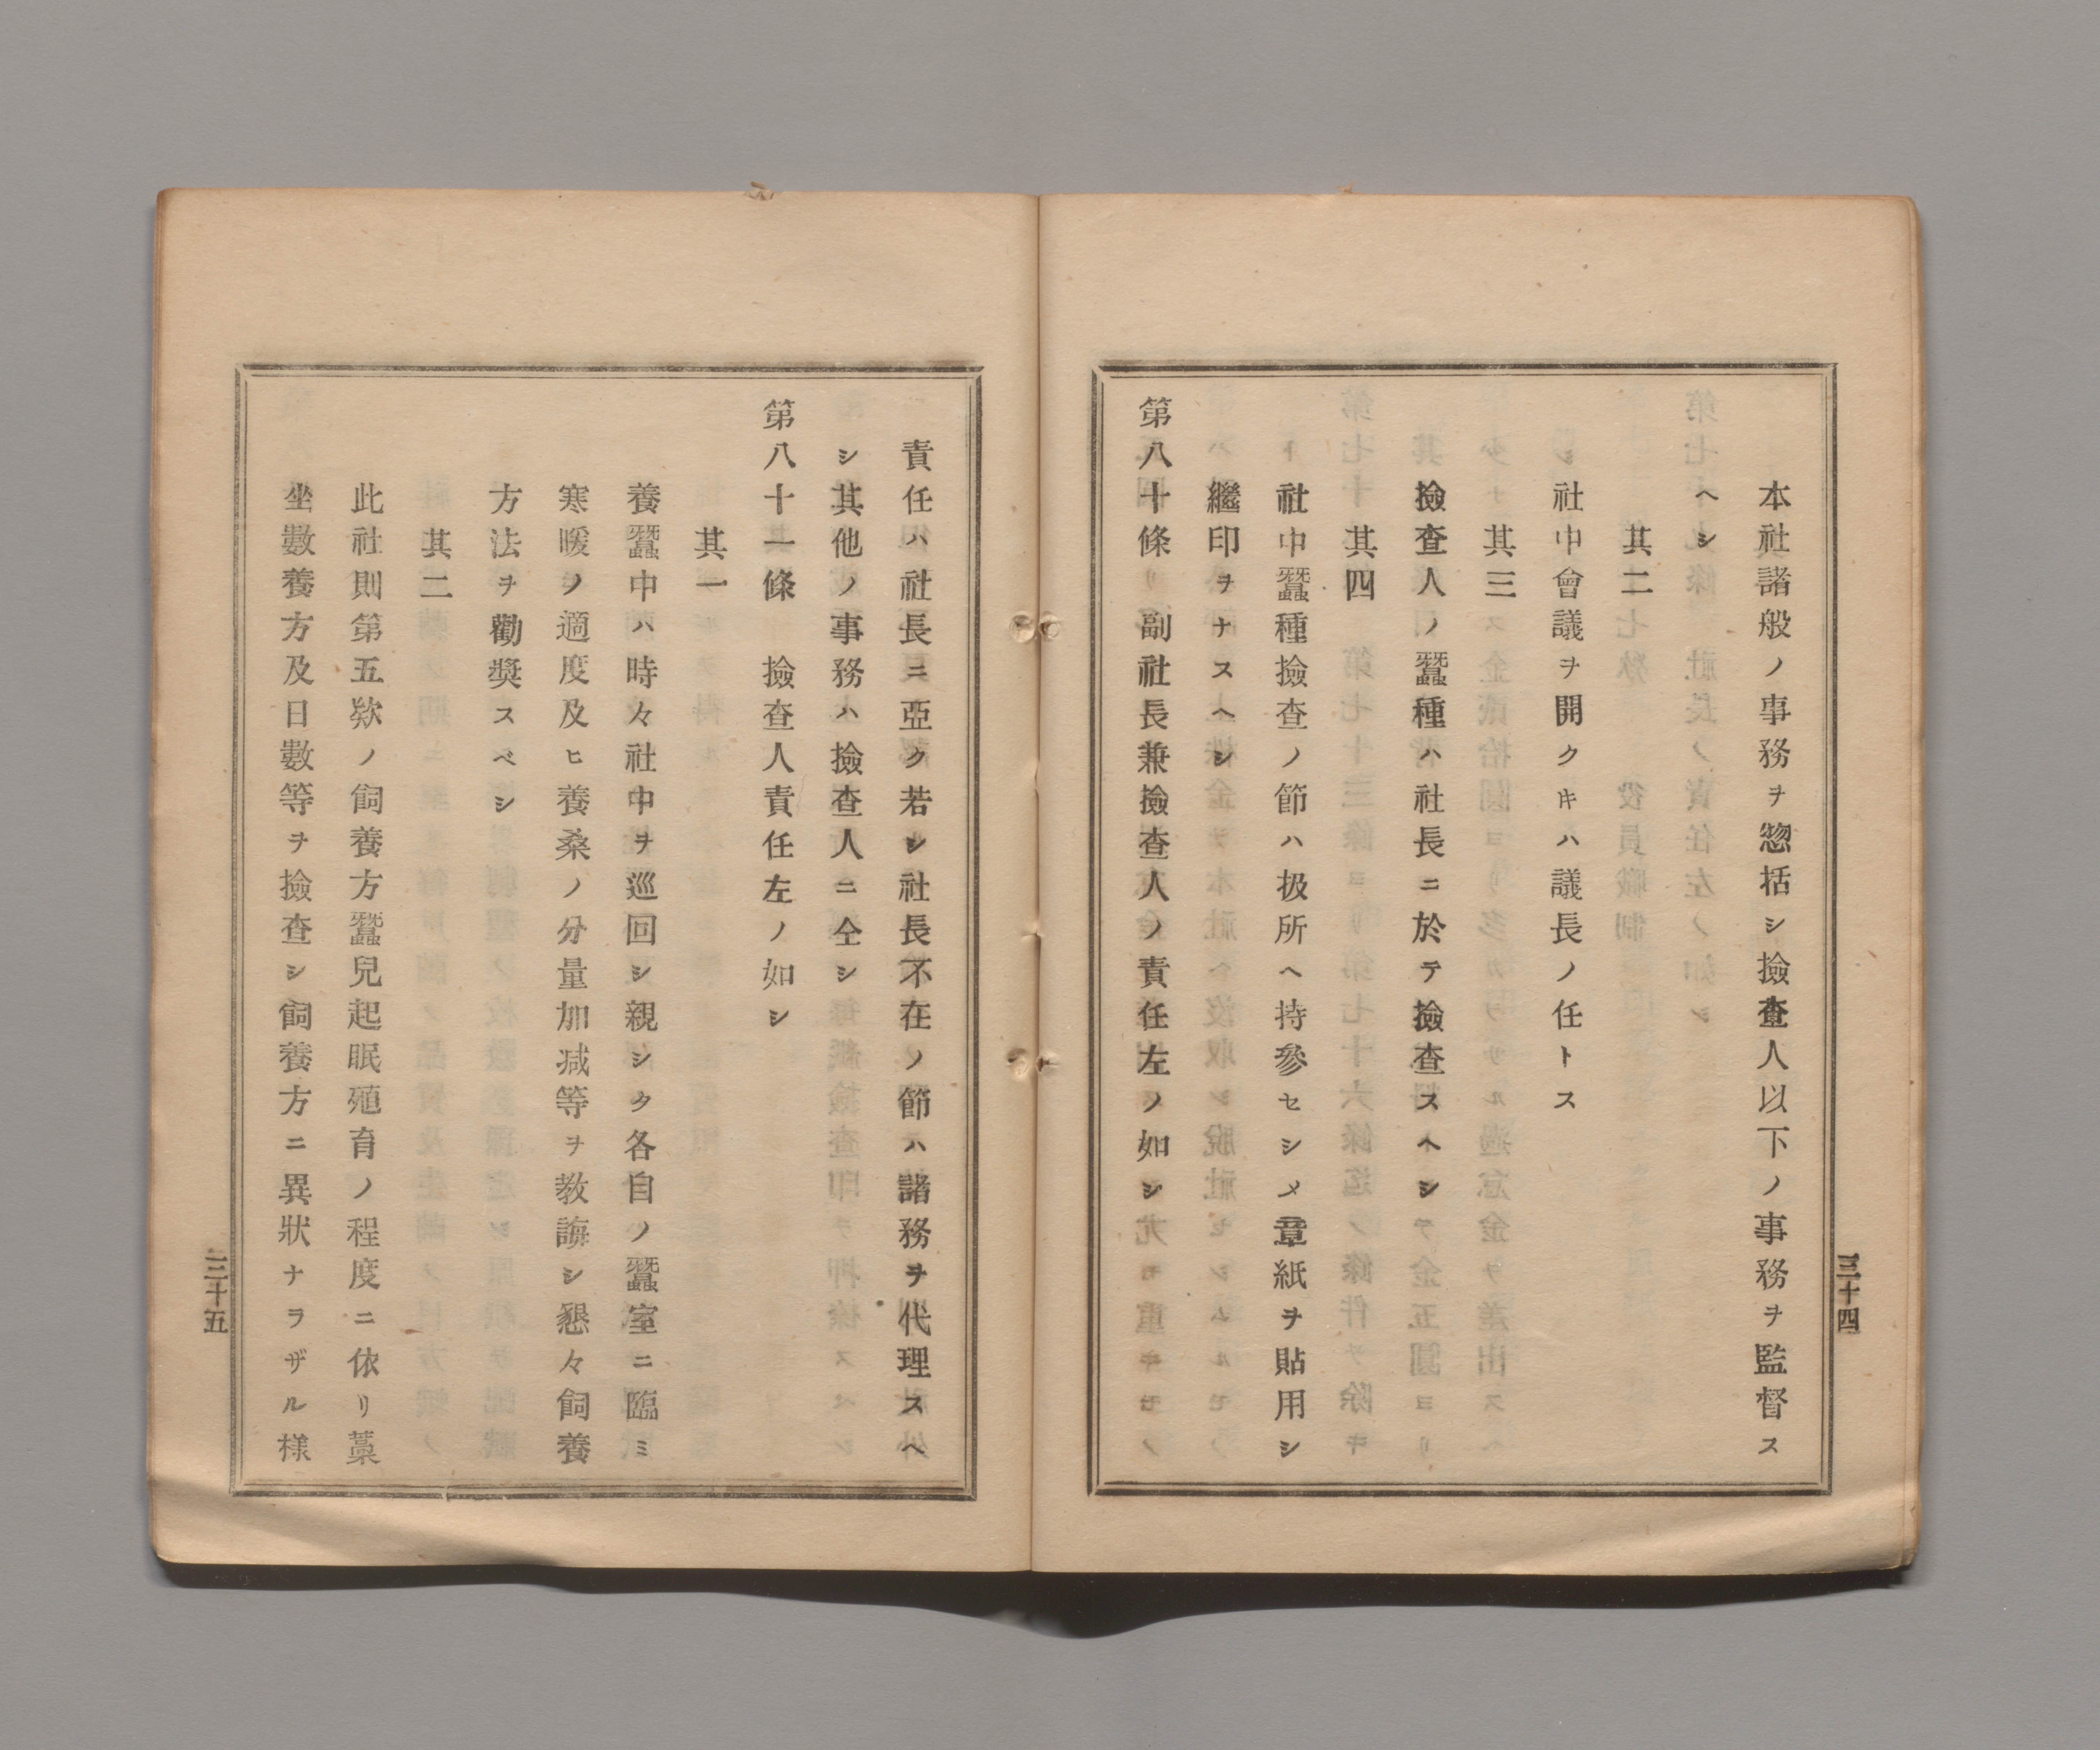 本社諸般ノ事務ヲ惣括シ撿查人以下ノ事務ヲ監督ス
ヘシ
其二
社中會議ヲ開クキハ議長ノ任トス
其三
撿查人ノ蠶種ハ社長ニ於テ撿查スヘシ
其四
社中蠶種撿查ノ節ハ扱所ヘ持參セシメ章紙ヲ貼用シ
繼印ヲナスヘシ
第八十條 副社長兼撿查人ノ責任左ノ如シ
三十四
責任ハ社長ニ亞ク若シ社長不在ノ節ハ諸務ヲ代理スヘ
シ其他ノ事務ハ撿查人ニ仝シ
第八十一條 撿查人責任左ノ如シ
其一
養蠶中ハ時々社中ヲ巡回シ親シク各自ノ蠶室ニ臨ミ
寒暖ノ適度及ヒ養桑ノ分量加减等ヲ敎誨シ懇々飼養
方法ヲ勸奬スベシ
其二
此社則第五欵ノ飼養方蠶兒起眠殖育ノ程度ニ依リ藁
坐數養方及日數等ヲ撿查シ飼養方ニ異狀ナラザル樣
三十五